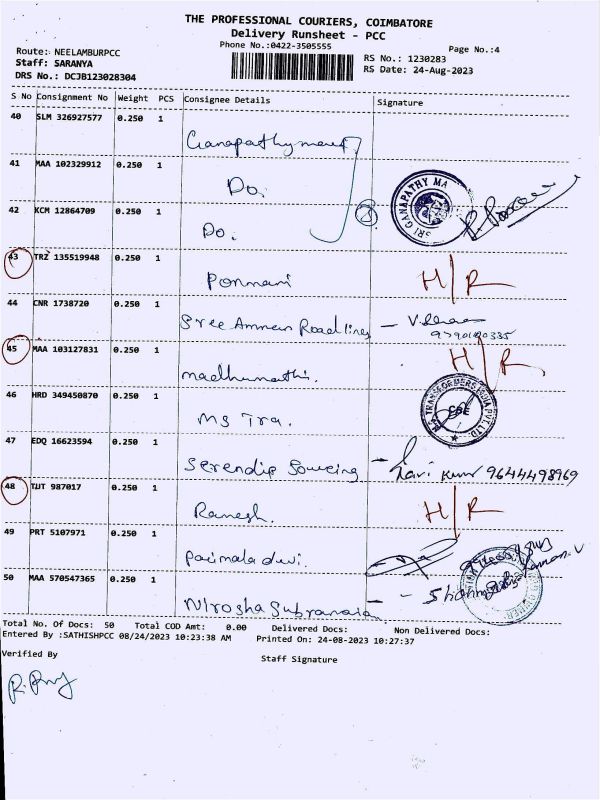 THE PROFESSIONAL COURIERS, COIMBATORE
Delivery Runsheet - PCC
Phone No.:0422-3505555
Page No.:4
Route: NEELAMBURPCC
Staff: SARANYA
DRS No.: DCJB123028304
RS No.: 1230283
RS Date: 24-Aug-2023
S No Consignment No Weight PCS Consignee Details Signature
40 SLM 326927577 0.250 1
Ganapathy
41 MAA 102329912 0.250 1
Do.
SRI GANAPATHY MA
42 KCM 12864709 0.250 1
Do.
43 TRZ 135519948 0.250 1
Ponmani H/R
44 CNR 1738720 0.250 1
Sree Amman Roadlines -
45 MAA 103127831 0.250 1
madhumathi. H/R
46 HRD 349450870 0.250 1
Mg Tra.
TRANSFORMERS INDIA PVT LTD
47 EDQ 16623594 0.250 1
Serendip Sourcing - Hari Kumar 9644498969
48 TJT 987017 0.250 1
Ramesh. H/R
49 PRT 5107971 0.250 1
Parimala devi.
50 MAA 570547365 0.250 1
Nirosha Subramaia -
Total No. Of Docs: 50 Total COD Amt: 0.00 Delivered Docs: Non Delivered Docs:
Entered By :SATHISHPCC 08/24/2023 10:23:38 AM Printed On: 24-08-2023 10:27:37
Verified By Staff Signature